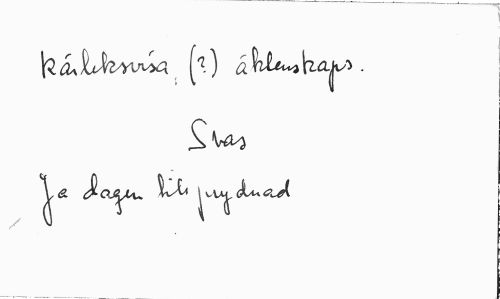 Kärleksvisa, (?) äktenskaps.
Svar
Ja dagen till prydnad